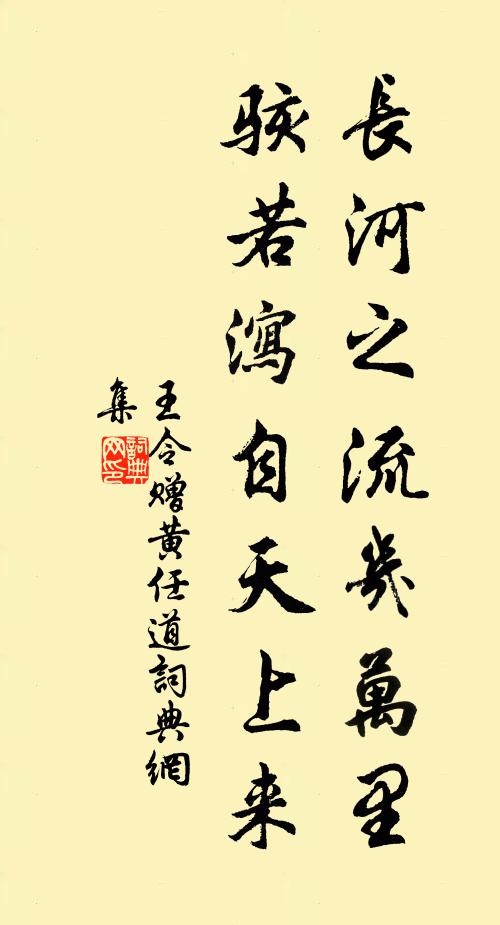 長河之流幾萬里
駭若瀉自天上来
王令赠黄任道詞典網
集
詞典
网印